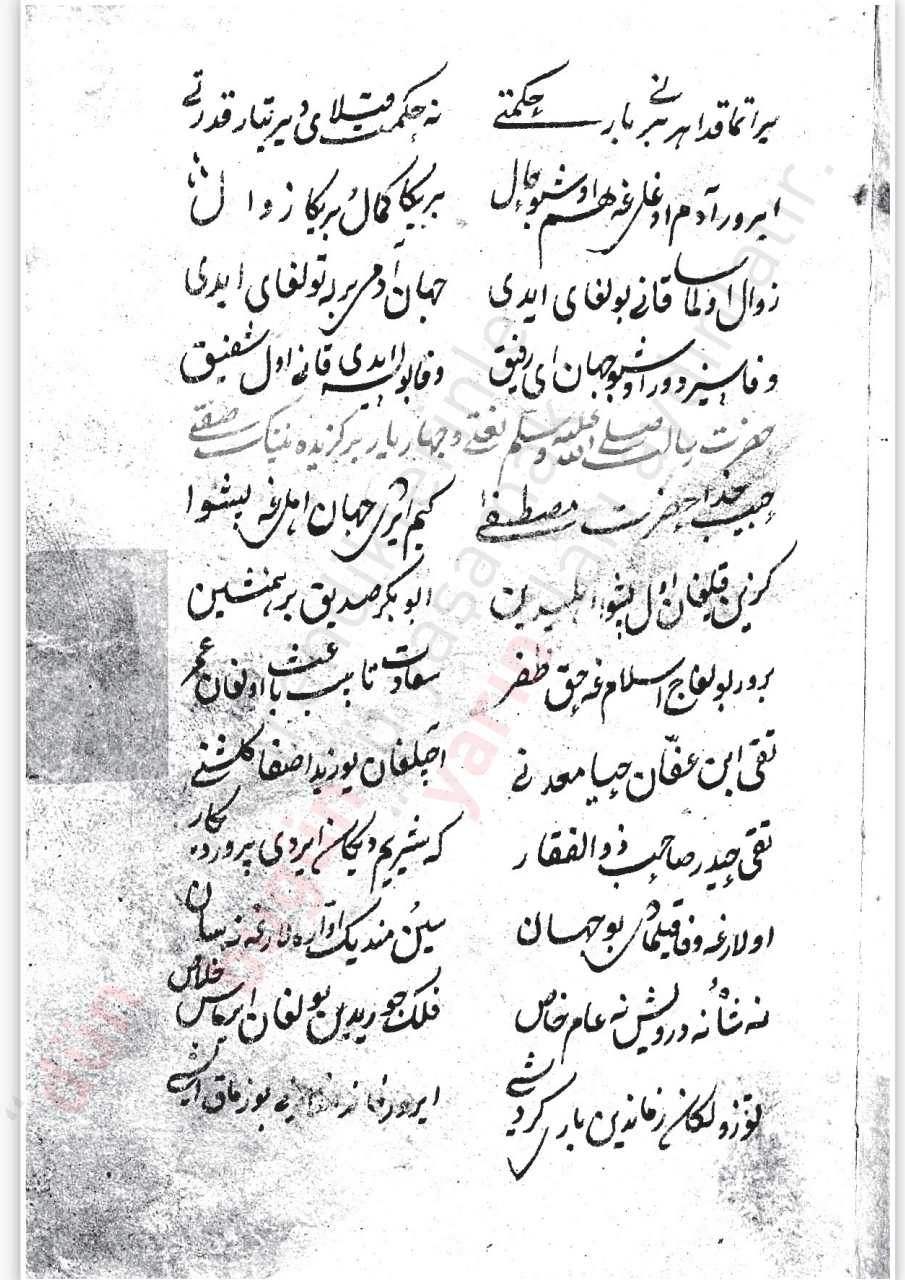 یراتماقدا هر نی بار حکمتی نه حکمت قیلای دیر یتار قدرتی
ایرور آدم اوغلی غه هم اوشبو حال بریکا کمال بریکا زوال
زوال اولماسا قانی بولغای ایدی جهان آدمی بیرله تولغای ایدی
وفاسیز دور اوشبو جهان ای رفیق وفا بولسه ایدی قانی اول شفیق
حضرت رسالت صلی الله علیه وسلم نعتی و چهار یار برگزیده نینک صفتی
حبیب خدا حضرت مصطفی کیم ایردی جهان اهلی غه پیشوا
گزین قیلغان اول پیشوا اهلیدین ابوبکر صدیق بر همنشین
برور بولغاچ اسلام غه حق ظفر سعادت تاپیب باعث اولغان عمر
تقی ابن عفان حیا معدنی آچیلغان یوزیدا صفا گلشنی
تقی حیدر صاحب ذوالفقار که شیریم دیکان ایردی پروردکار
اولارغه وفا قیلمادی بو جهان سین مندیک آواره لارغه نه سان
نه شاه نه درویش نه عام خاص فلک جوریدین بولغان ایرماس خلاص
توزولکان زماندین باری گردشی ایرور بوزماق ایشی